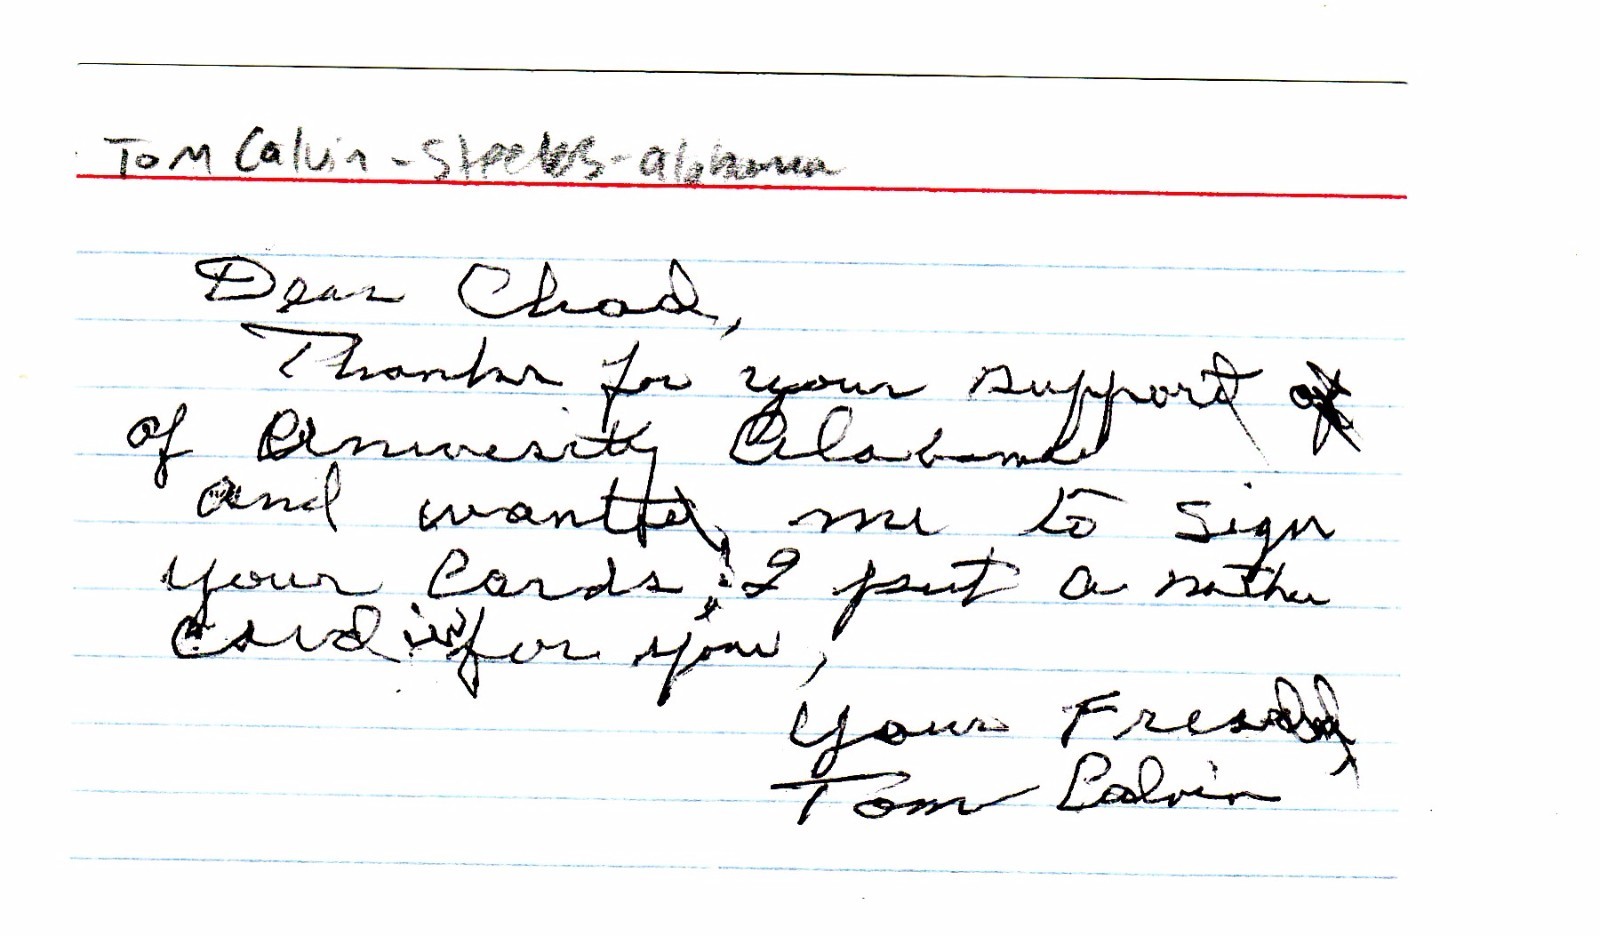 Tom Calvin - Steelers - Alabama
Dear Chad,
Thanks for your support
of University Alabama
and wanted me to sign
your Cards, I put a nother
Card in for you,
Your Friend,
Tom Calvin